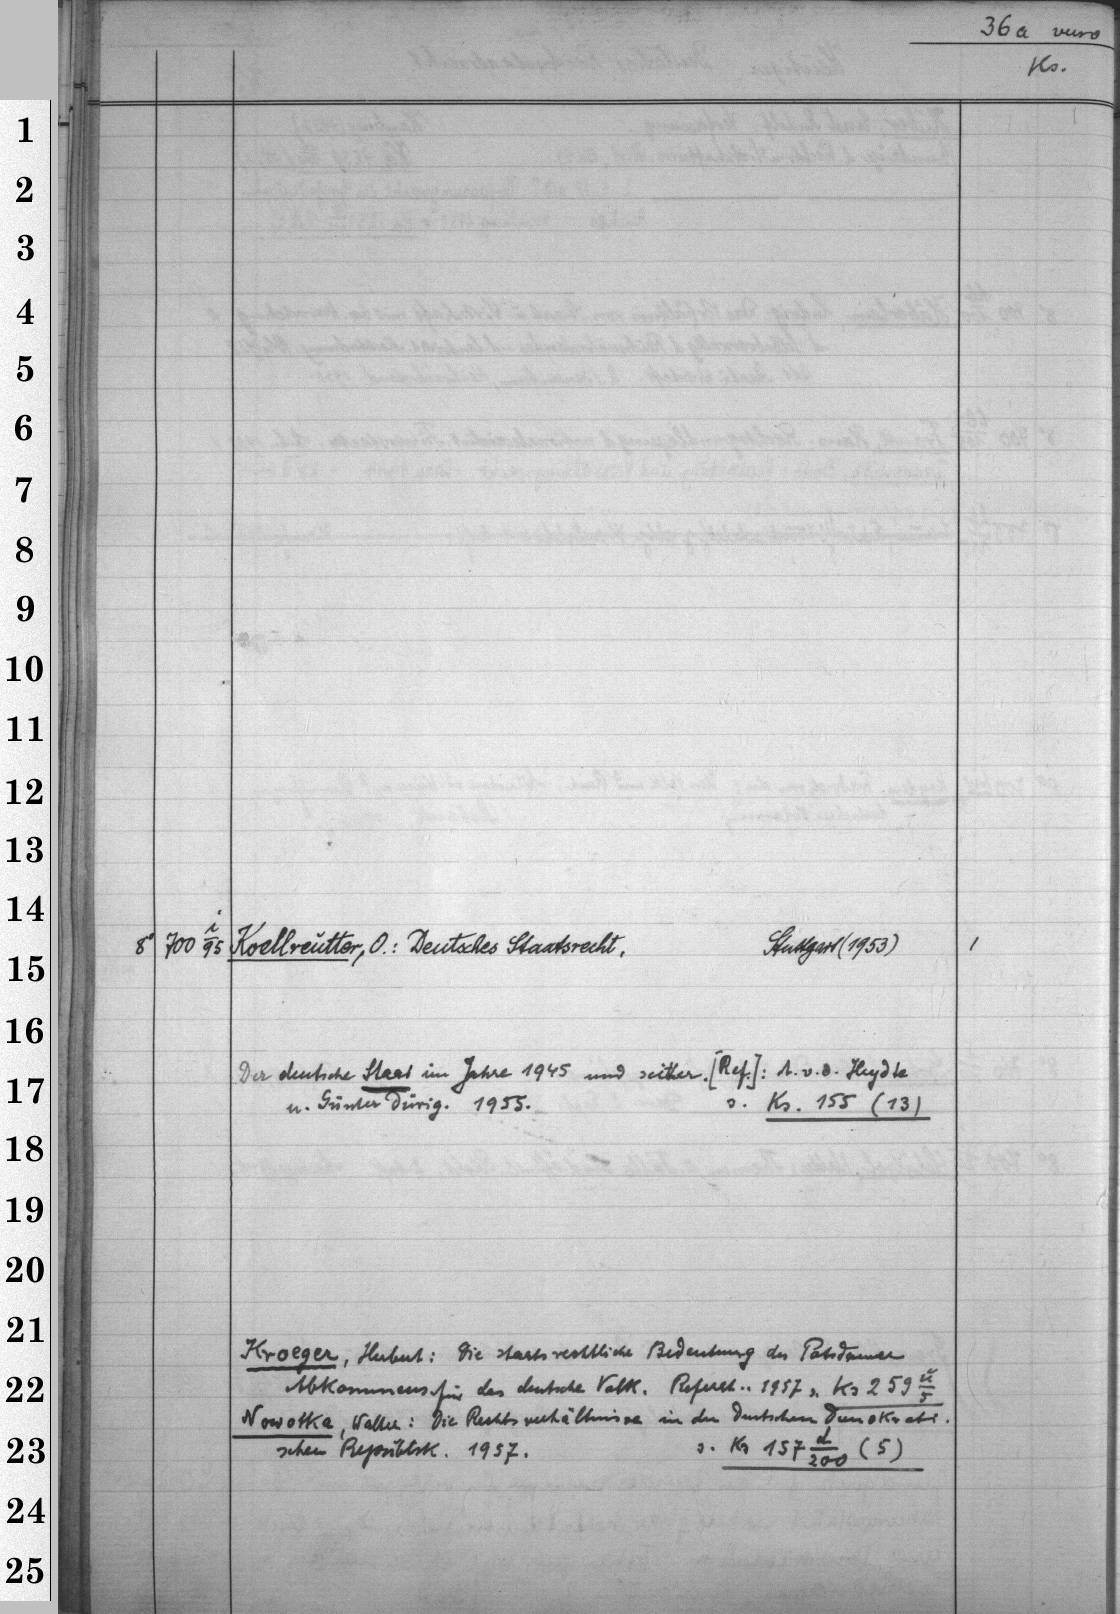 36a verso
Ks.
1
2
3
4
5
6
7
8
9
10
11
12
13
14
8° 700 i/95 Koellreutter, O.: Deutsches Staatsrecht. Stuttgart (1953) 1
15
16
Der deutsche Staat im Jahre 1945 und seither. [Ref.]: A. v. d. Heydte
17
u. Günter Dürig. 1955. s. Ks. 155 (13)
18
19
20
21
Kroeger, Herbert: Die staatsrechtliche Bedeutung des Potsdamer
22
Abkommens für das deutsche Volk. Referat.. 1957 s. Ks 259 ü/5
Nowotka, Walter: Die Rechtsverhältnisse in der Deutschen Demokrati-
23
schen Republik. 1957. s. Ks 157 d/200 (5)
24
25